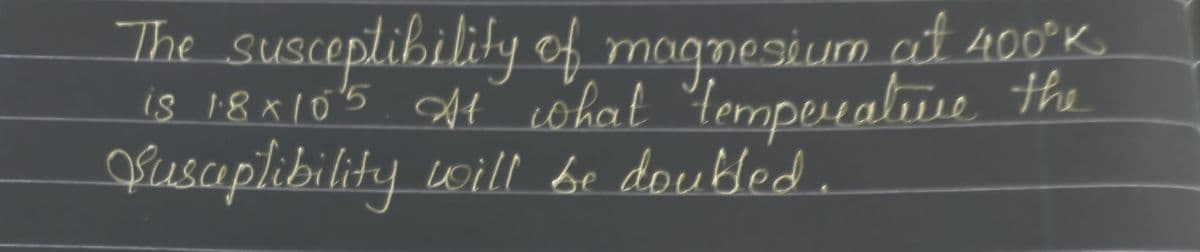 The susceptibility of magnesium at 400°K
is 1.8 x 10⁻5. At what temperature the
Susceptibility will be doubled.